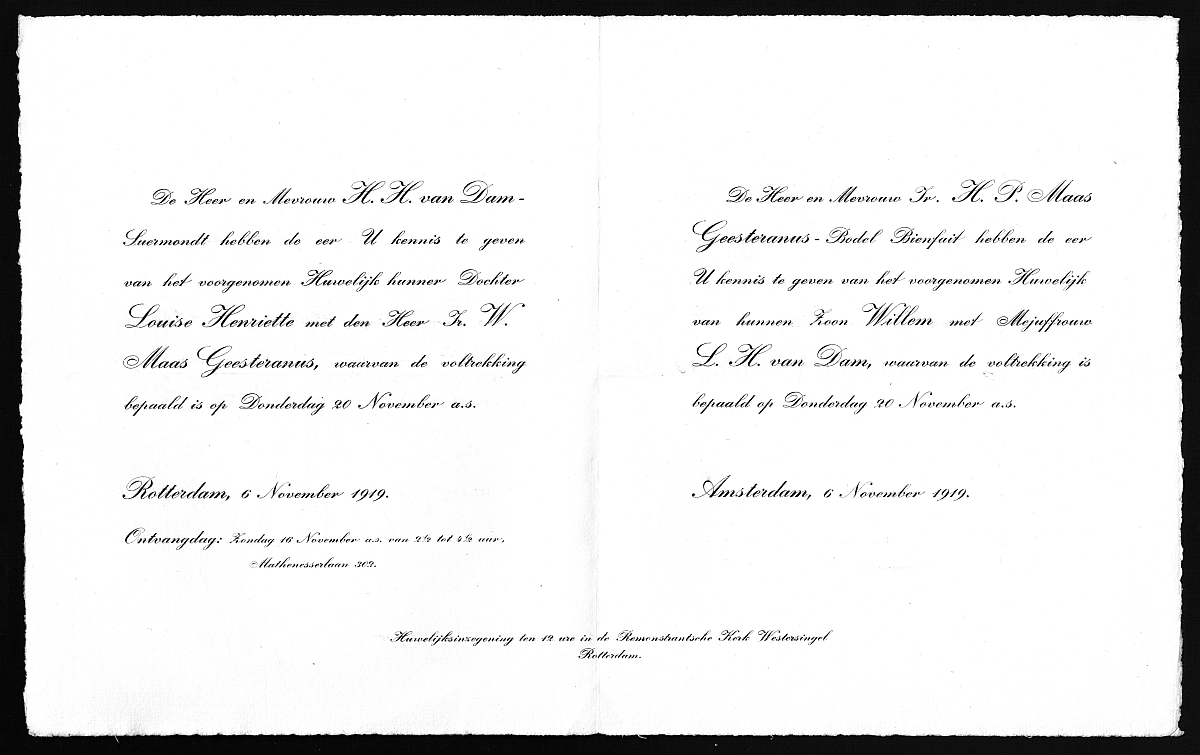 De Heer en Mevrouw H. H. van Dam-
Suermondt hebben de eer U kennis te geven
van het voorgenomen Huwelijk hunner Dochter
Louise Henriette met den Heer Ir. W.
Maas Geesteranus, waarvan de voltrekking
bepaald is op Donderdag 20 November a.s.
Rotterdam, 6 November 1919.
Ontvangdag: Zondag 16 November a.s. van 2½ tot 4½ uur,
Mathenesserlaan 302.
De Heer en Mevrouw Ir. H. P. Maas
Geesteranus - Bodel Bienfait hebben de eer
U kennis te geven van het voorgenomen Huwelijk
van hunnen Zoon Willem met Mejuffrouw
L. H. van Dam, waarvan de voltrekking is
bepaald op Donderdag 20 November a.s.
Amsterdam, 6 November 1919.
Huwelijksinzegening ten 12 ure in de Remonstrantsche Kerk Westersingel
Rotterdam.